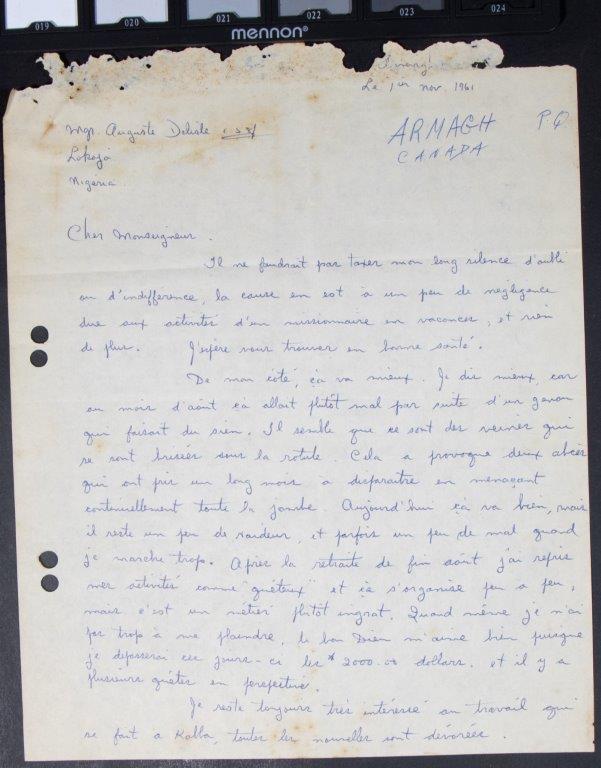 019 020 021 022 023 024
mennon®
Le 1er Nov. 1961
Mgr. Auguste Delisle c.s.sp
Lokoja
Nigéria
ARMAGH P.Q
CANADA
Cher Monseigneur.
Il ne faudrait pas taxer mon long silence d'oubli
ou d'indifference, la cause en est à un peu de negligence
due aux activités d'un missionnaire en vacances, et rien
de plus. J'espère vous trouver en bonne santé.
De mon côté, ça va mieux. Je dis mieux, car
au mois d'août ça allait plutôt mal par suite d'un genou
qui faisait du sien. Il semble que ce sont des veines qui
se sont brisées sous la rotule. Cela a provoqué deux abcès
qui ont pris un long mois à disparaitre en menaçant
continuellement toute la jambe. Aujourd'hui ça va bien, mais
il reste un peu de raideur, et parfois un peu de mal quand
je marche trop. Après la retraite de fin août j'ai repris
mes activités comme "quêteux" et ça s'organise peu a peu,
mais c'est un métier plutôt ingrat. Quand même je n'ai
pas trop à me plaindre, le bon Dieu m'aime bien puisque
je depasserai ces jours-ci les 2000.00 dollars. et il y a
plusieurs quêtes en perspective.
Je reste toujours très intéressé au travail qui
se fait a Kabba, toutes les nouvelles sont dévorées.